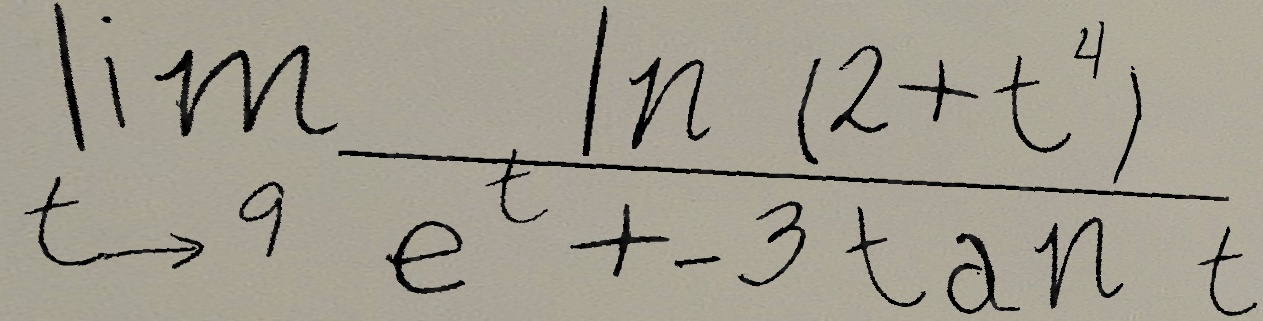 \lim_{t \to 9} \frac{\ln(2+t^4)}{e^t + -3 \tan t}